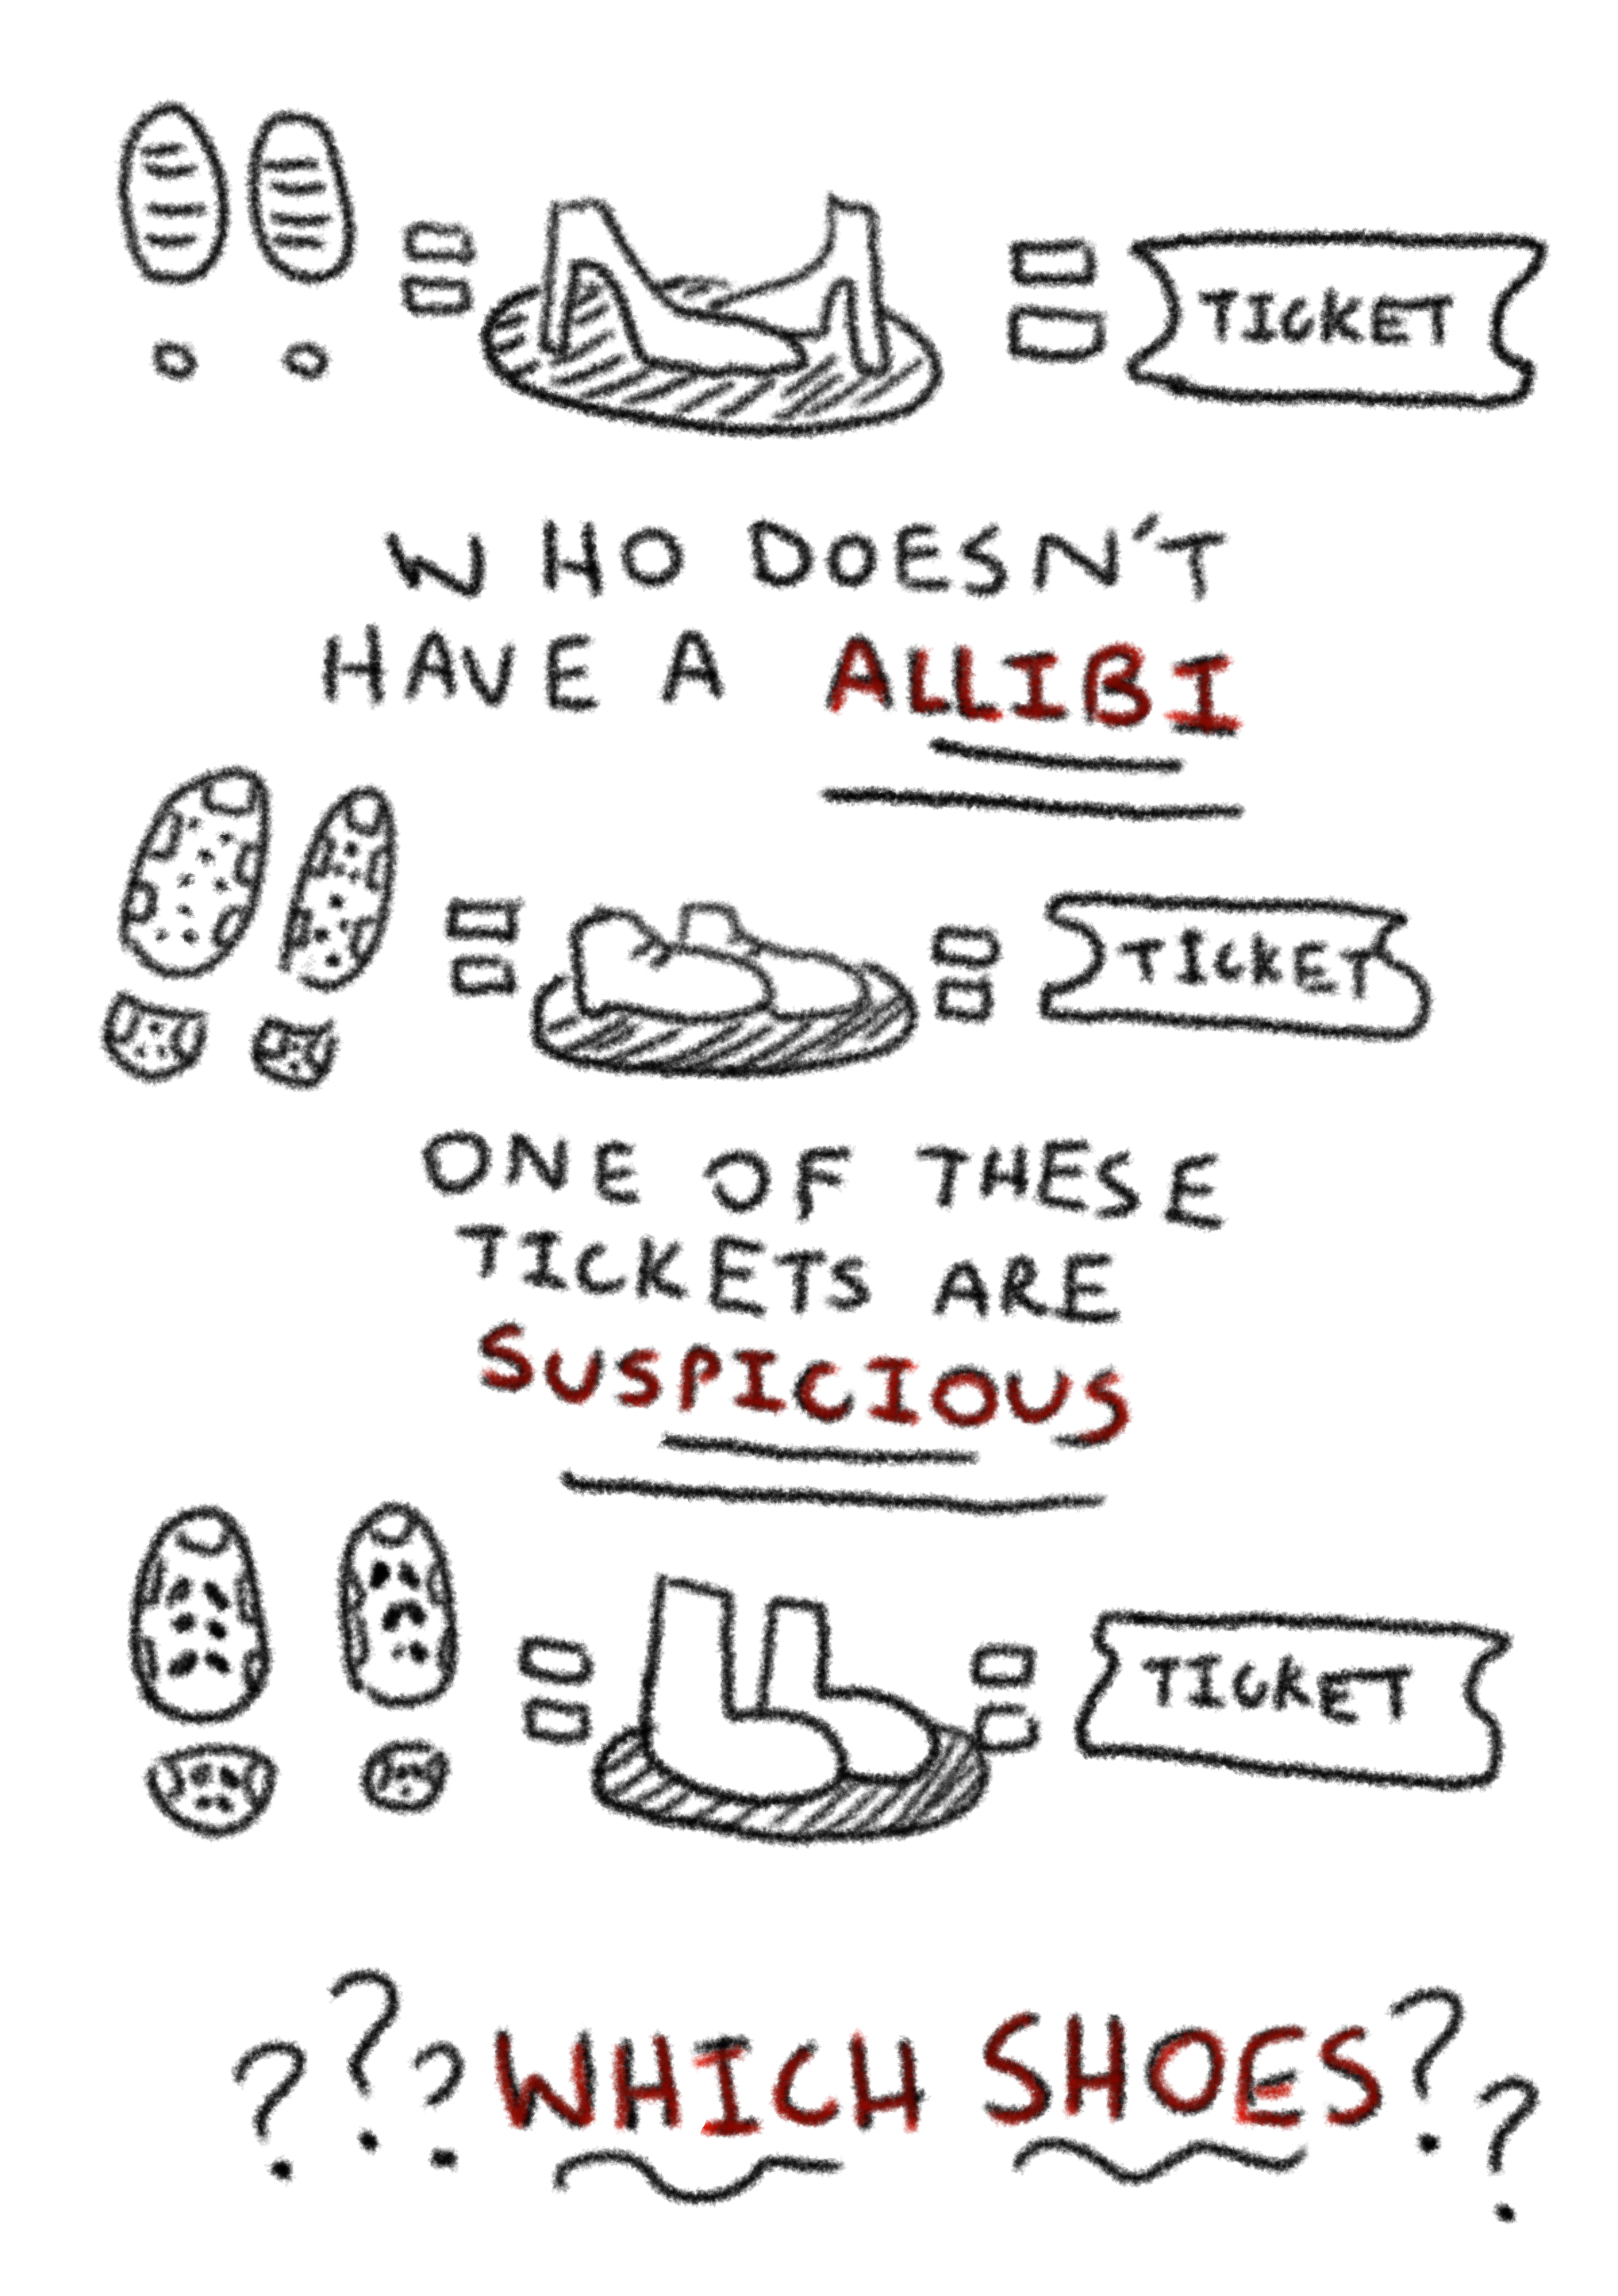 TICKET
WHO DOESN'T
HAVE A ALLIBI
TICKET
ONE OF THESE
TICKETS ARE
SUSPICIOUS
TICKET
???WHICH SHOES??